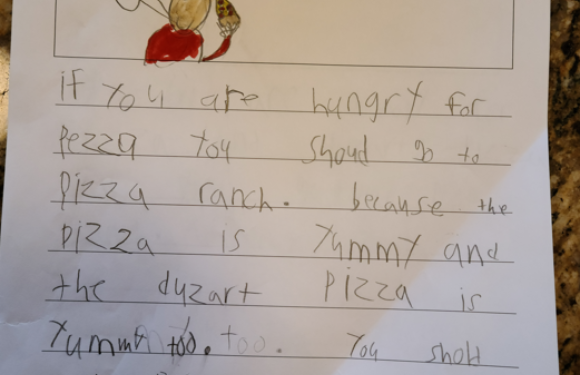 if you are hungry for
pezza you shoud go to
pizza ranch. because the
pizza is yummy and
the dyzart pizza is
yummy too. too. You shold